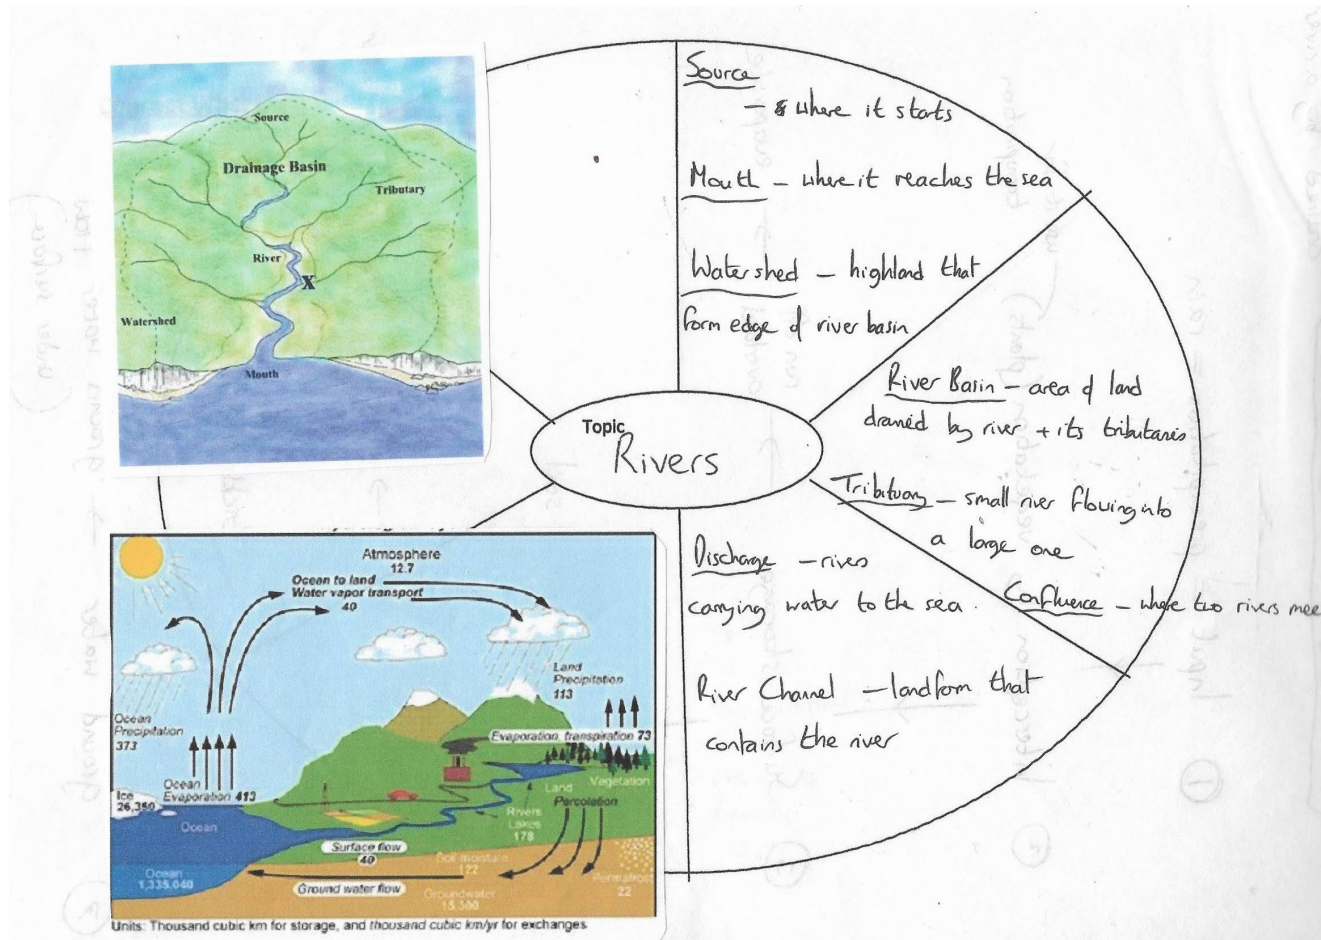 Source
Drainage Basin
Tributary
River
X
Watershed
Mouth
Source
- where it starts
Mouth - where it reaches the sea
Watershed - highland that
form edge of river basin
River Basin - area of land
drained by river + its tributaries
Tributuary - small river flowing into
a large one
Confluence - where two rivers mee
Topic
Rivers
Discharge - rivers
carrying water to the sea.
River Channel - landform that
contains the river
Atmosphere
12.7
Ocean to land
Water vapor transport
40
Land
Precipitation
113
Ocean
Precipitation
373
Evaporation, transpiration 73
Ocean
Evaporation 413
Ice
26,350
Vegetation
Land
Percolation
Rivers
Lakes
178
Ocean
Surface flow
40
Soil moisture
122
Ocean
1,335,040
Ground water flow
Permafrost
22
Groundwater
15,300
Units: Thousand cubic km for storage, and thousand cubic km/yr for exchanges